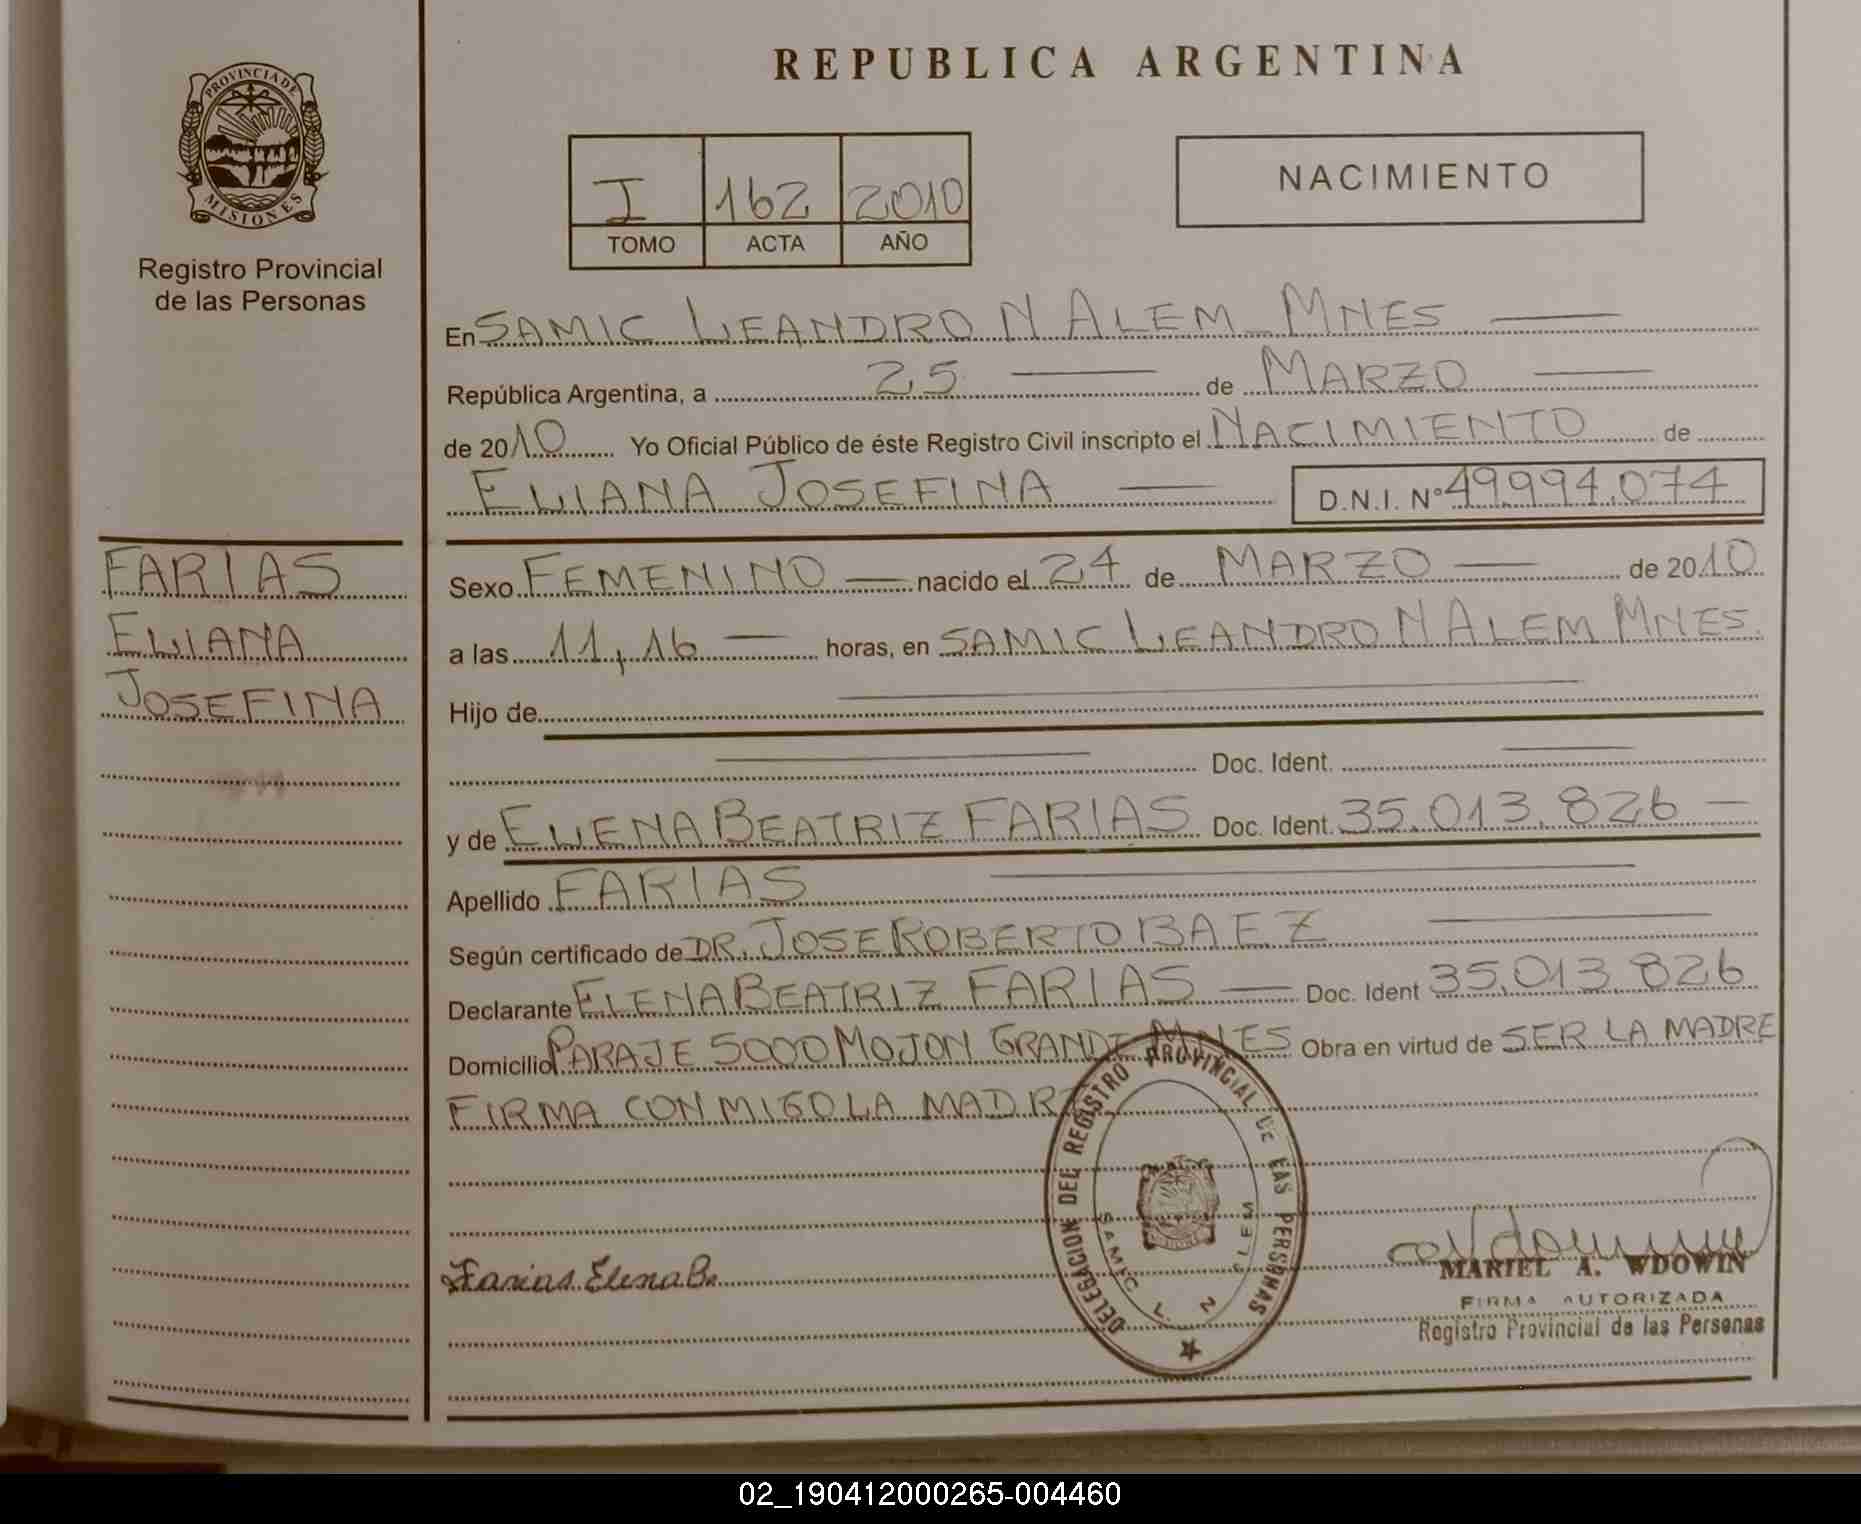 PROVINCIA DE
MISIONES
Registro Provincial
de las Personas
REPUBLICA ARGENTINA
I 162 2010
TOMO ACTA AÑO
NACIMIENTO
En SAMIC LEANDRO N ALEM MNES
República Argentina, a 25 de MARZO
de 2010 Yo Oficial Público de éste Registro Civil inscripto el NACIMIENTO de
ELIANA JOSEFINA D.N.I. Nº 49.994.074
FARIAS
ELIANA
JOSEFINA
Sexo FEMENINO nacido el 24 de MARZO de 2010
a las 11,16 horas, en SAMIC LEANDRO N ALEM MNES.
Hijo de
Doc. Ident.
y de ELENA BEATRIZ FARIAS Doc. Ident. 35.013.826
Apellido FARIAS
Según certificado de DR. JOSE ROBERTO BAEZ
Declarante ELENA BEATRIZ FARIAS Doc. Ident 35.013.826
Domicilio PARAJE 5000 MOJON GRANDE MNES Obra en virtud de SER LA MADRE
FIRMA CONMIGO LA MADRE
DELEGACION DEL REGISTRO PROVINCIAL DE LAS PERSONAS
SAMIC L. N. ALEM
Farias Elena B.
MARIEL A. WDOWIN
FIRMA AUTORIZADA
Registro Provincial de las Personas
02_190412000265-004460